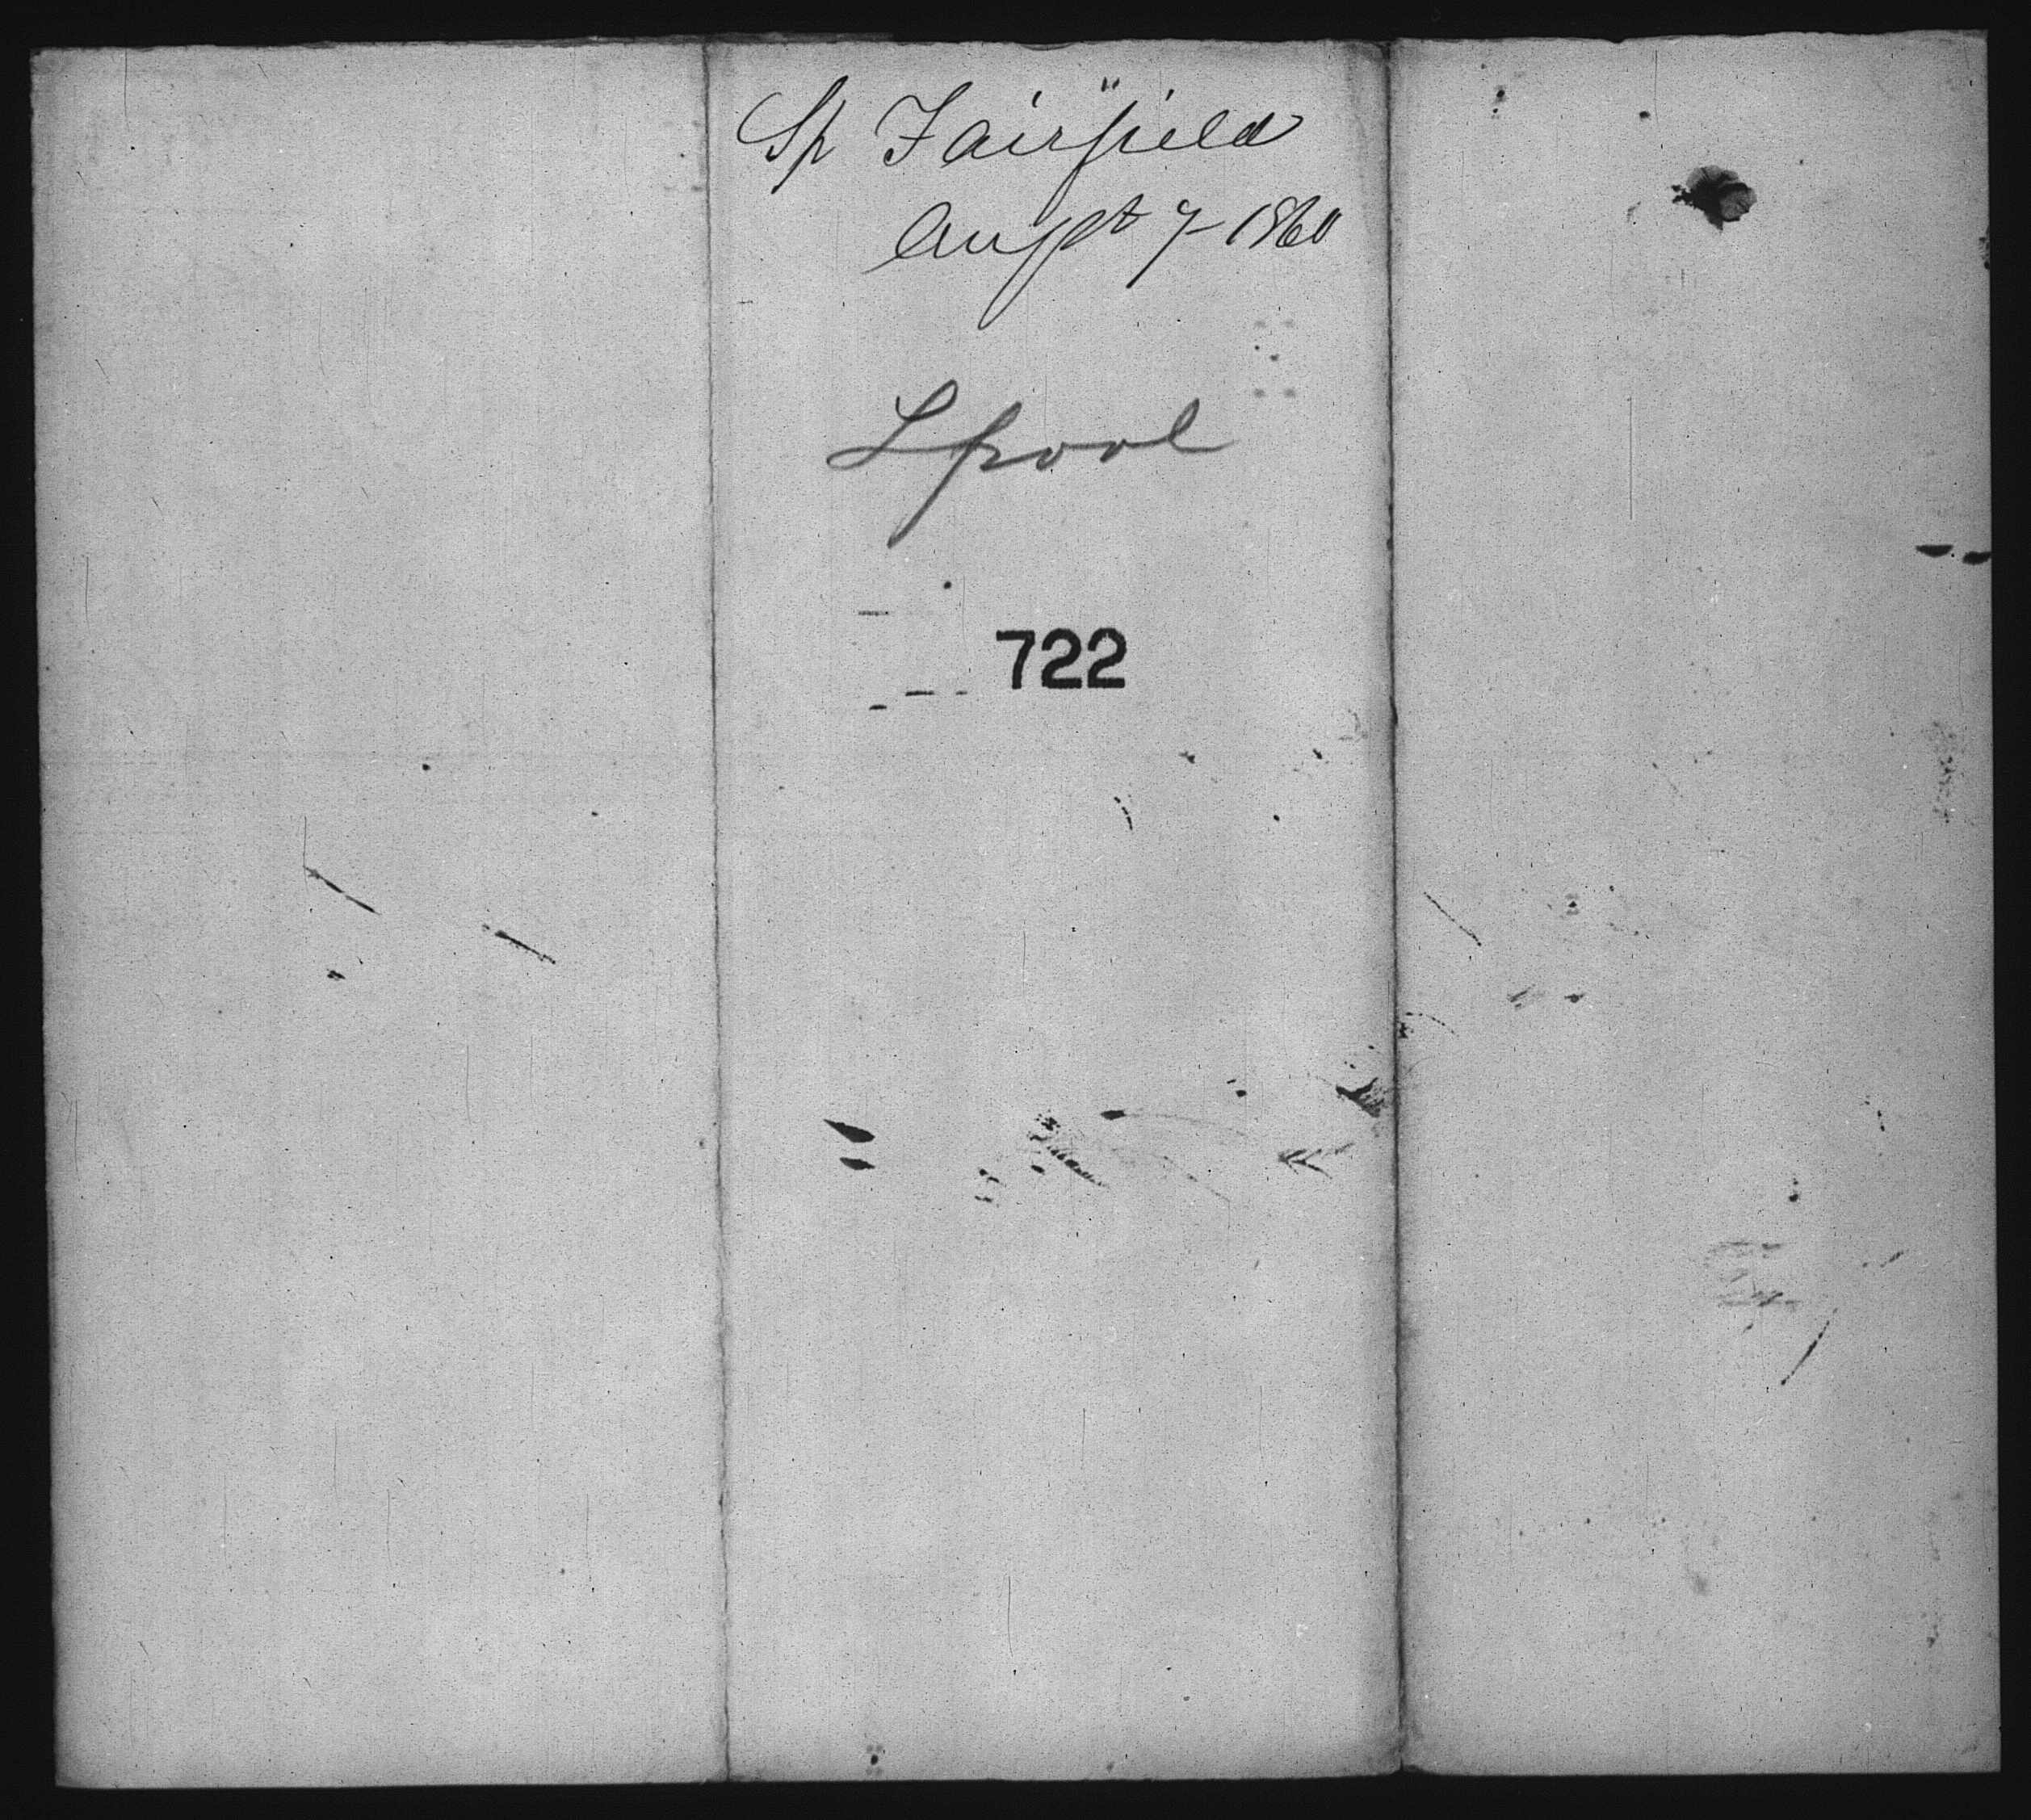 Sp "Fairfield"
Augst 7-1860
Lpool
722